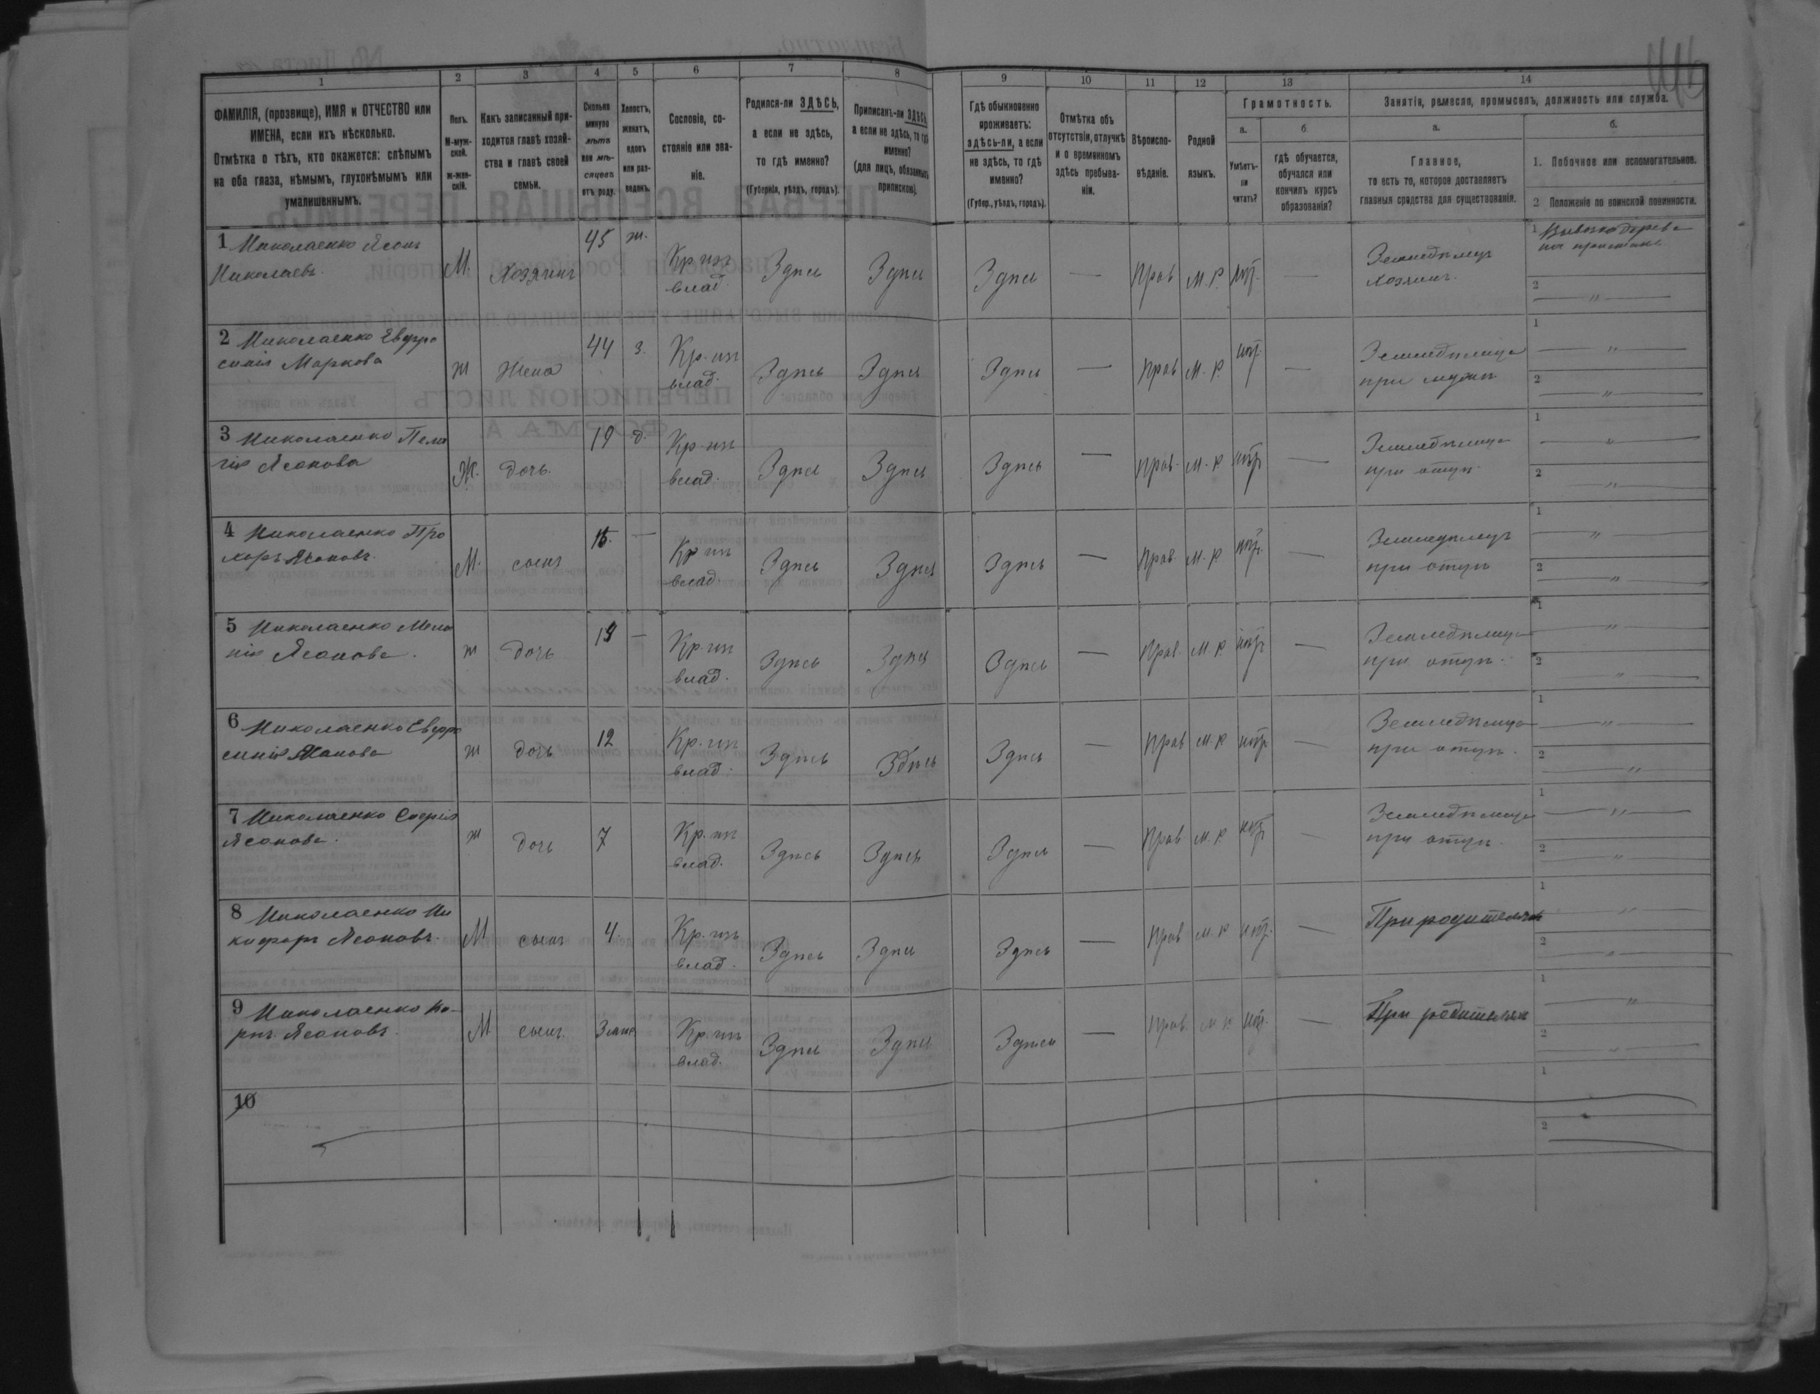 1 2 3 4 5 6 7 8 9 10 11 12 13 14
ФАМИЛІЯ, (прозвище), ИМЯ и ОТЧЕСТВО или
ИМЕНА, если ихъ нѣсколько.
Отмѣтка о тѣхъ, кто окажется: слѣпымъ
на оба глаза, нѣмымъ, глухонѣмымъ или
умалишеннымъ.
Полъ.
М-муж-
ской.
ж-жен-
скій.
Какъ записанный при-
ходится главѣ хозяй-
ства и главѣ своей
семьи.
Сколько
минуло
лѣтъ
или мѣ-
сяцевъ
отъ роду.
Холостъ,
женатъ,
вдовъ
или раз-
веденъ.
Сословіе, со-
стояніе или зва-
ніе.
Родился-ли ЗДѢСЬ,
а если не здѣсь,
то гдѣ именно?
(Губернія, уѣздъ, городъ).
Приписанъ-ли ЗДѢСЬ,
а если не здѣсь, то гдѣ
именно?
(для лицъ, обязанныхъ
припискою).
Гдѣ обыкновенно
проживаетъ:
здѣсь-ли, а если
не здѣсь, то гдѣ
именно?
(Губер., уѣздъ, городъ).
Отмѣтка объ
отсутствіи, отлучкѣ
и о временномъ
здѣсь пребыва-
ніи.
Вѣроиспо-
вѣданіе.
Родной
языкъ.
Грамотность.
а.
Умѣетъ-
ли
читать?
б.
гдѣ обучается,
обучался или
кончилъ курсъ
образованія?
Занятіе, ремесло, промыселъ, должность или служба.
а.
Главное,
то есть то, которое доставляетъ
главныя средства для существованія.
б.
1. Побочное или вспомогательное.
2 Положеніе по воинской повинности.
1 Николаенко Ясонъ
Николаевъ. М. Хозяинъ 45 ж. Кр-нъ
влад. Здѣсь Здѣсь Здѣсь — Прав М. Р. нѣт. — Земледѣлецъ
хозяинъ. 1
2 — " —
2 Николаенко Евфро
синія Маркова ж Жена 44 з. Кр-нъ
влад. Здѣсь Здѣсь Здѣсь — Прав М. Р. нѣт. — Земледѣлица
при мужѣ 1 — " —
2 — " —
3 Николаенко Пела
гія Ясонова Ж. дочь. 19 д. Кр-нъ
влад. Здѣсь Здѣсь Здѣсь — Прав. М. Р нѣт — Земледѣлица
при отцѣ. 1 — " —
2 — " —
4 Николаенко Про
хоръ Ясоновъ. М. сынъ — Кр-нъ
влад. Здѣсь Здѣсь Здѣсь — Прав М. Р нѣт. — Земледѣлецъ
при отцѣ 1 — " —
2 — " —
5 Николаенко Мела
нія Ясонова. ж дочь — Кр-нъ
влад. Здѣсь Здѣсь Здѣсь — Прав. М. Р нѣт — Земледѣлица
при отцѣ. 1 — " —
2 — " —
6 Николаенко Евфро
синія Ясонова ж дочь 12 Кр-нъ
влад. Здѣсь Здѣсь Здѣсь — Прав М. Р нѣт — Земледѣлица
при отцѣ. 1 — " —
2 — " —
7 Николаенко Софія
Ясонова. ж дочь 7 Кр-нъ
влад. Здѣсь Здѣсь Здѣсь — Прав М. Р нѣт — Земледѣлица
при отцѣ. 1 — " —
2 — " —
8 Николаенко Ни
кифоръ Ясоновъ. М сынъ 4 Кр-нъ
влад. Здѣсь Здѣсь Здѣсь — Прав М. Р нѣт. — При родителяхъ 1 — " —
2 — " —
9 Николаенко
Ясоновъ. М сынъ. Кр-нъ
влад. Здѣсь Здѣсь Здѣсь — Прав. М. Р нѣт. — При родителяхъ 1 — " —
2 — " —
10 1
2